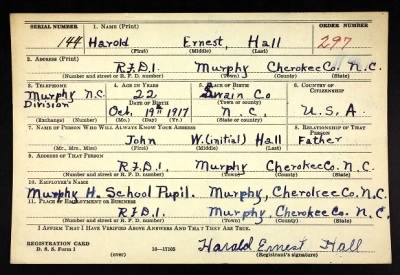 SERIAL NUMBER 1. NAME (Print) ORDER NUMBER
144 Harold Ernest, Hall 297
(First) (Middle) (Last)
2. ADDRESS (Print)
R.F.D.1. Murphy Cherokee Co. N.C.
(Number and street or R. F. D. number) (Town) (County) (State)
3. TELEPHONE 4. AGE IN YEARS 5. PLACE OF BIRTH 6. COUNTRY OF CITIZENSHIP
Murphy N.C. 22 Swain Co
Division DATE OF BIRTH (Town or county)
Oct. 19th 1917 N.C. U.S.A.
(Exchange) (Number) (Mo.) (Day) (Yr.) (State or country)
7. NAME OF PERSON WHO WILL ALWAYS KNOW YOUR ADDRESS 8. RELATIONSHIP OF THAT PERSON
John W.(initial) Hall Father
(Mr., Mrs., Miss) (First) (Middle) (Last)
9. ADDRESS OF THAT PERSON
R.F.D.1. Murphy Cherokee Co. N.C.
(Number and street or R. F. D. number) (Town) (County) (State)
10. EMPLOYER'S NAME
Murphy H. School Pupil. Murphy, Cherokee Co. N.C.
11. PLACE OF EMPLOYMENT OR BUSINESS
R.F.D.1. Murphy, Cherokee Co. N.C.
(Number and street or R. F. D. number) (Town) (County) (State)
I AFFIRM THAT I HAVE VERIFIED ABOVE ANSWERS AND THAT THEY ARE TRUE.
REGISTRATION CARD
D. S. S. Form 1 16—17105 Harold Ernest Hall
(over) (Registrant's signature)